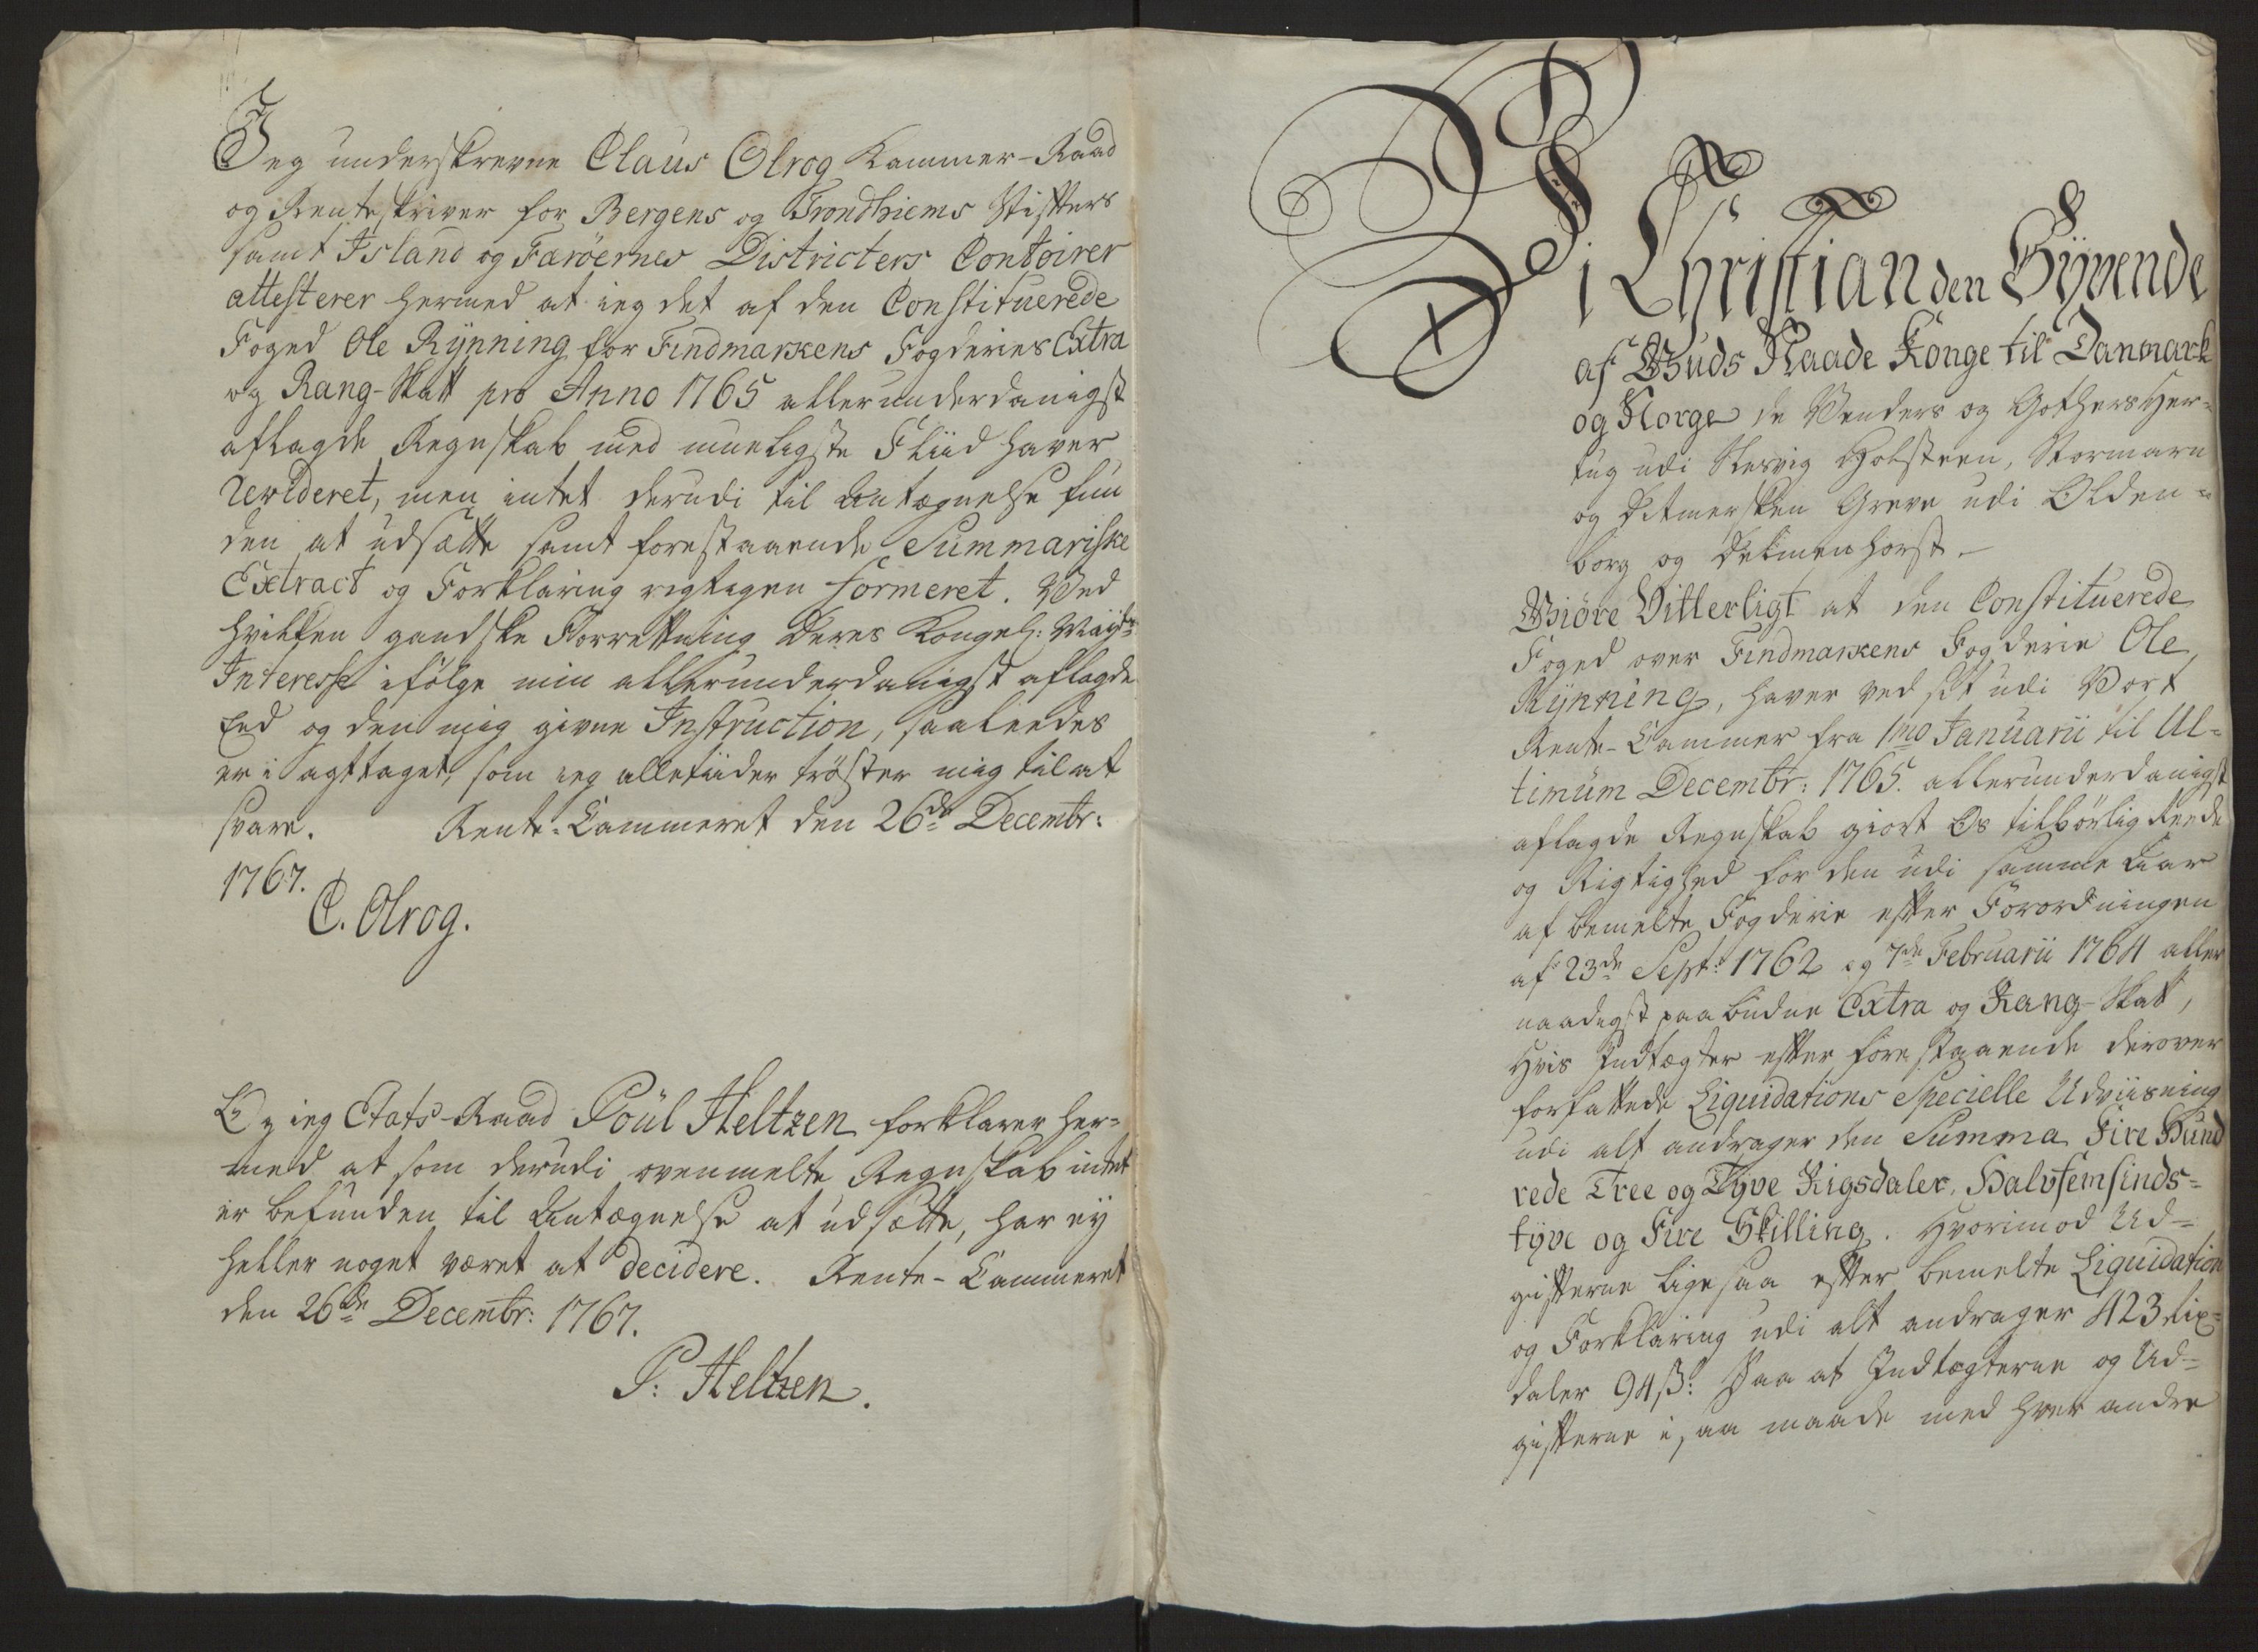 Jeg underskrevne Claus Olrog Kammer-Raad
og Renteskriver for Bergens og Trondhiems Stifters
samt Island og Faröernes Districters Contoirer
attesterer hermed at ieg det af den Constituerede
Foged Ole Rynning for Findmarkens Fogderies Extra
og Rang-Skatt pro Anno 1765 allerunderdanigst
aflagde Regnskab med mueligste Fliid haver
Revideret, men intet derudi til Antægnelse fun
den at udsætte samt forestaaende Summariske
Extract og Forklaring rigtigen formeret. Ved
hvilken gandske Forretning Deres Kongel: May:ts
Interesse ifölge min allerunderdanigst aflagde
Eed og den mig givne Instruction, saaleedes
er i agttaget, som ieg alletiider tröster mig til at
svare. Rente-Cammeret den 26de Decembr:
1767.
C. Olrog.
Og ieg Etats-Raad Poul Heltzen forklarer her=
med at som derudi ovenmelte Regnskab intet
er befunden til Antægnelse at udsætte, har ey
heller noget været at decidere. Rente-Cammeret
den 26de Decembr: 1767.
P: Heltzen.
Vi Christian den Syvende
af Guds Naade Konge til Danmark
og Norge de Venders og Gothers Her=
tug udi Slesvig Holsteen, Stormarn
og Ditmersken Greve udi Olden=
borg og Delmenhorst.
Giöre Vitterligt at den Constituerede
Foged over Findmarkens Fogderie Ole
Rynning, haver ved sit udi Vort
Rente-Cammer fra 1mo Januarii til Ul=
timum Decembr: 1765. allerunderdanigst
aflagde Regnskab giort Os tilbörlig Reede
og Rigtighed for den udi samme Aar
af bemelte Fogderie efter Forordningen
af 23de Sept: 1762 og 7de Februarii 1764 aller
naadigst paabudne Extra og Rang-Skatt,
Hvis Indtægter efter forestaaende derover
forfattede Liquidations Specielle Udviisning
udi alt andrager den Summa Fire Hund
rede Tree og Tyve Rigsdaler, Halvfemsinds=
tyve og Fire Skilling. Hvorimod Ud=
gifterne ligesaa efter bemelte Liquidation
og Forklaring udi alt andrager 423 Rix=
daler 94 ß: Saa at Indtægterne og Ud=
gifterne i saa maade med hver andre